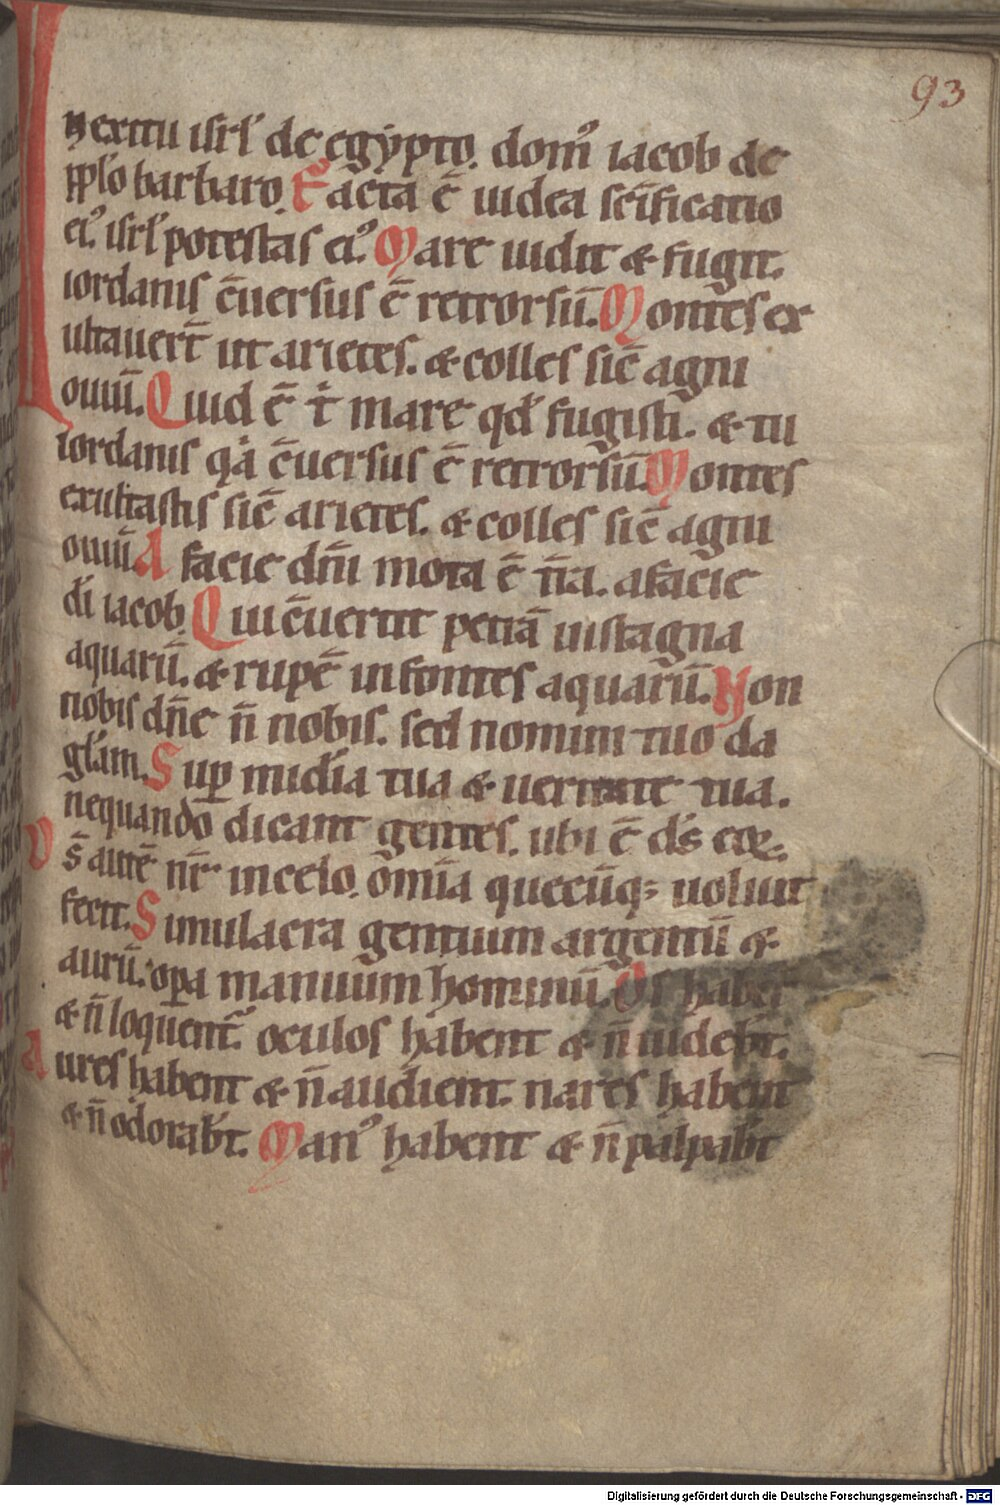 93
In exitu isrł de egẏpto. dom᷒ iacob de
pplo barbaro. Facta ē iudea sc̄ificatio
ei᷒. isrł potestas ei᷒. Mare uidit & fugit.
iordanis c̄uersus ē retrorsū. Montes ex
ultauer̄t ut arietes. & colles sic̄ agni
ouiū. Quid ē t̓ mare qd̓ fugisti. & tu
iordanis qͣ c̄uersus ē retrorsū. Montes
exultastis sic̄ arietes. & colles sic̄ agni
ouiū. A facie dn̄i mota ē t̄ra. afacie
dī iacob. Qui c̄uertit petrā instagna
aquarū. & rupē infontes aquarū. Non
nobis dn̄e n̄ nobis. sed nomini tuo da
gła̅m. Sup̱ mīđia tua & ueritate tua.
nequando dicant gentes. ubi ē d̄s eoꝝ.
D s̄ autē nr̄ incelo. om̄ia quecūq; uoluit
fecit. Simulacra gentium argentū &
aurū. oꝑa manuum hominū. Os habent
& n̄ loquent᷒. oculos habent & n̄ uideb̄t.
Aures habent & n̄ audient. nares habent
& n̄ odorab̄t. Man᷒ habent & n̄ palpab̄t
Digitalisierung gefördert durch die Deutsche Forschungsgemeinschaft - DFG